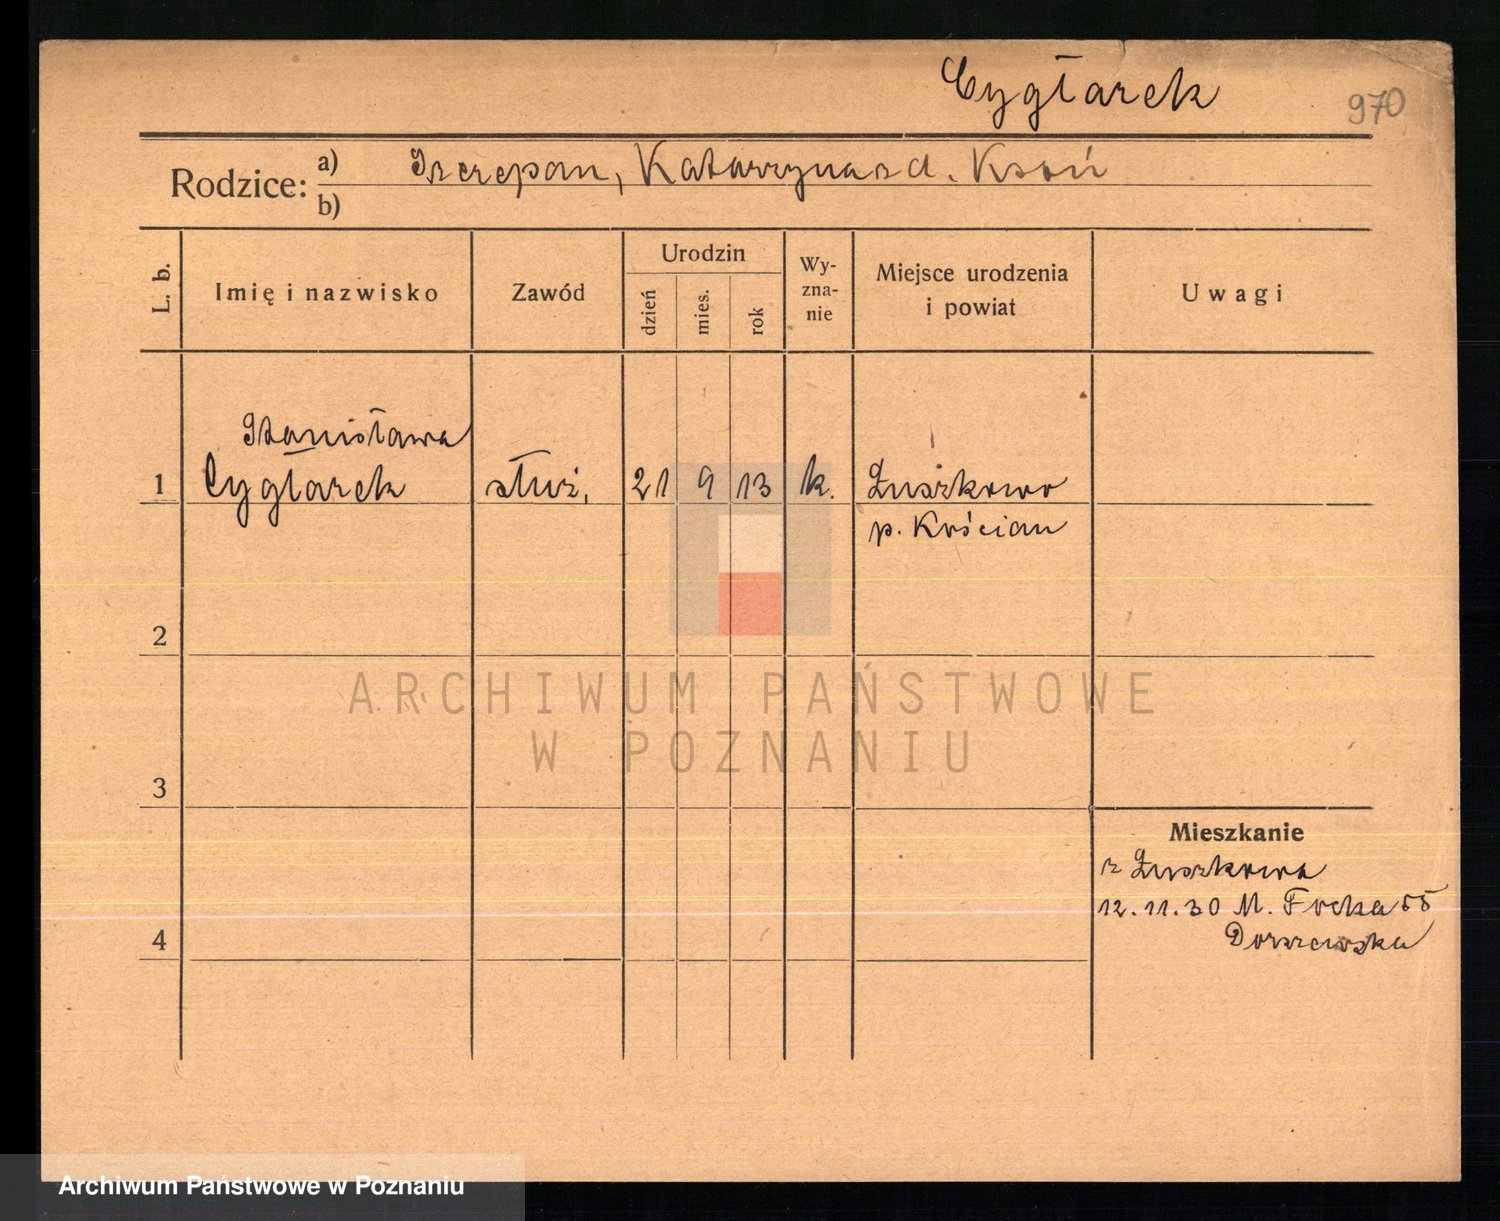 Cygłarek
970
Rodzice: a) Szczepan, Katarzyna z d. Ksoń
b)
L. b.
Imię i nazwisko
Zawód
Urodzin
dzień
mies.
rok
Wy-
zna-
nie
Miejsce urodzenia
i powiat
Uwagi
Stanisława
1 Cygłarek służ. 21 9 13 k. Żuszkowo
p. Kościan
2
3
4
Mieszkanie
z Żuszkowa
12.11.30 M. Focha 55
Dorszewska
ARCHIWUM PAŃSTWOWE
W POZNANIU
Archiwum Państwowe w Poznaniu